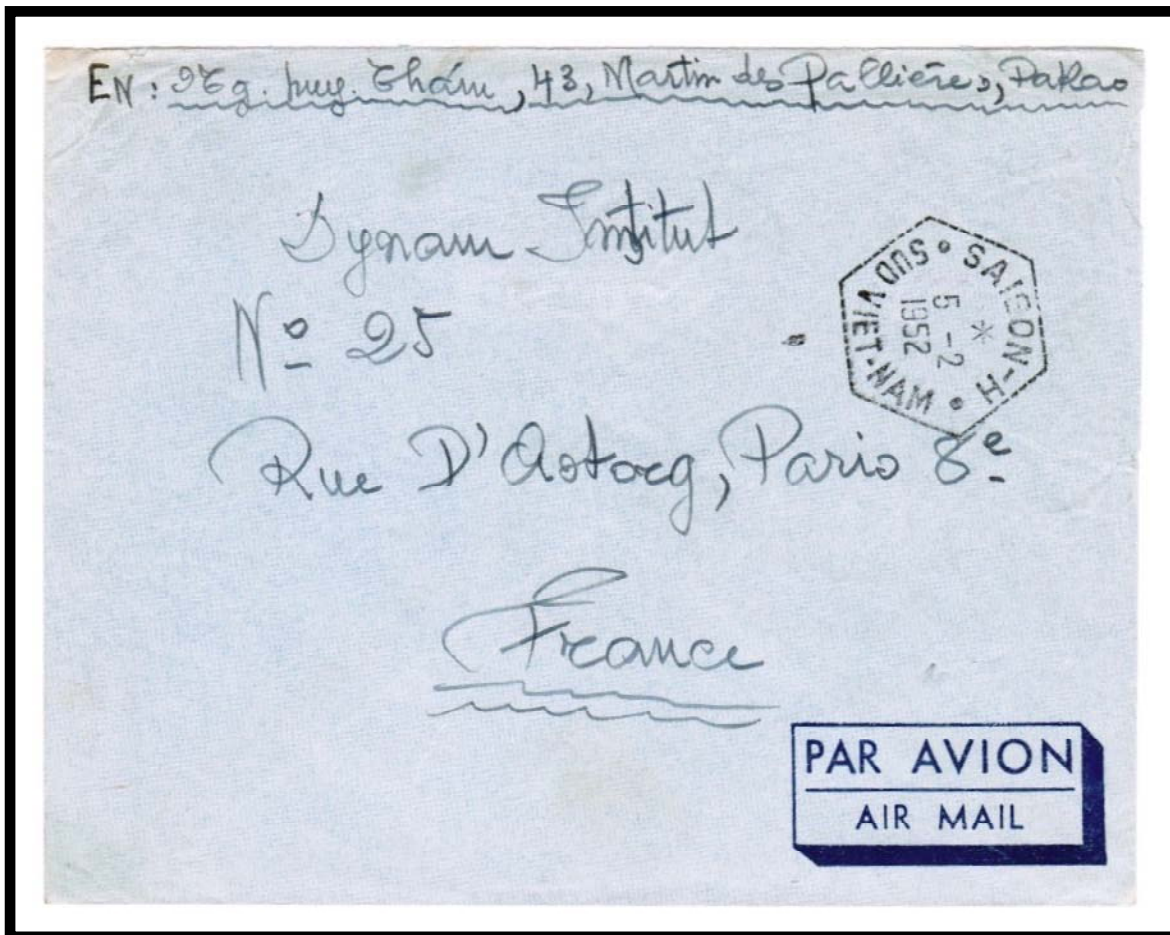 EN: Ng. huy. Thám, 43, Martin des Pallières, Dakao
Dynam Institut
Nº 25
Rue D'Astorg, Paris 8e
France
SAIGON-H
SUD VIET-NAM
*
5-2
1952
PAR AVION
AIR MAIL